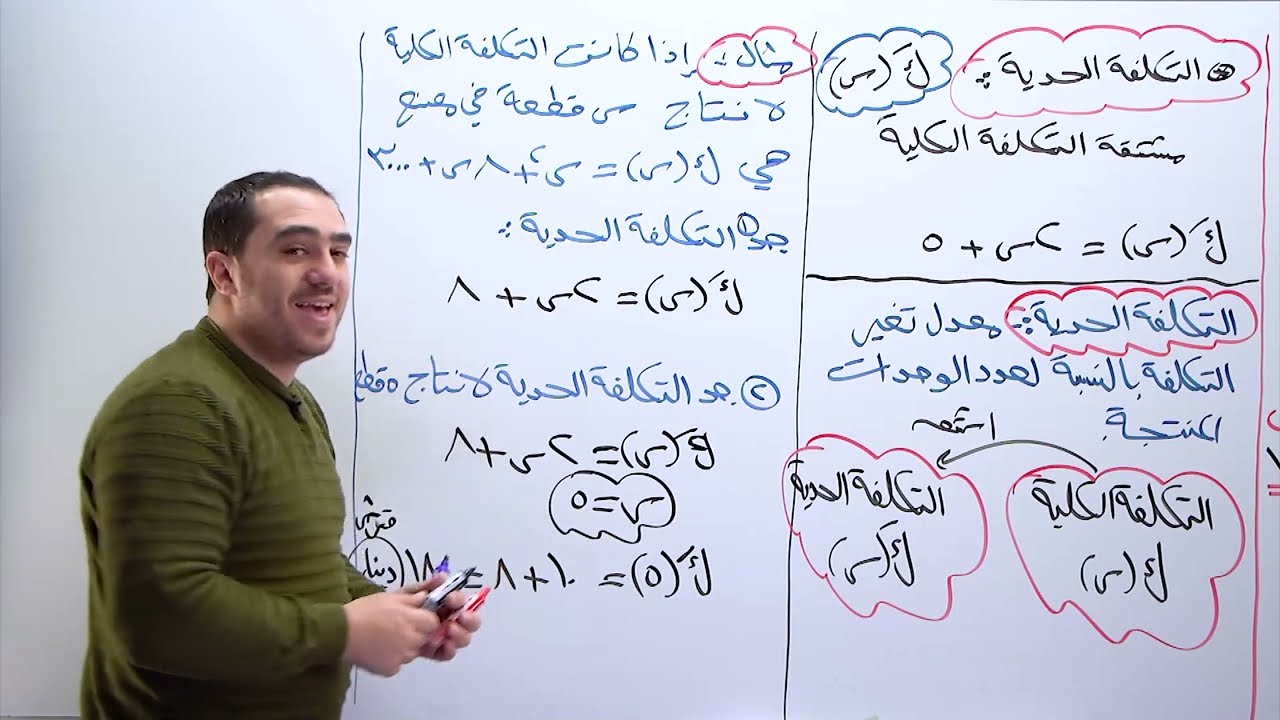 التكلفة الحدية : كَ (س)
مشتقة التكلفة الكلية
كَ (س) = ٢س + ٥
التكلفة الحدية : معدل تغير
التكلفة بالنسبة لعدد الوحدات
المنتجة.
اشتق
التكلفة الكلية
ك (س)
التكلفة الحدية
كَ (س)
مثال : إذا كانت التكلفة الكلية
لانتاج س قطعة في مصنع
هي ك (س) = س٢ + ٨س + ٣٠٠٠
جد ١ التكلفة الحدية :
كَ (س) = ٢س + ٨
٢ جد التكلفة الحدية لانتاج ٥ قطع
كَ (س) = ٢س + ٨
س = ٥
كَ (٥) = ١٠ + ٨ = ١٨